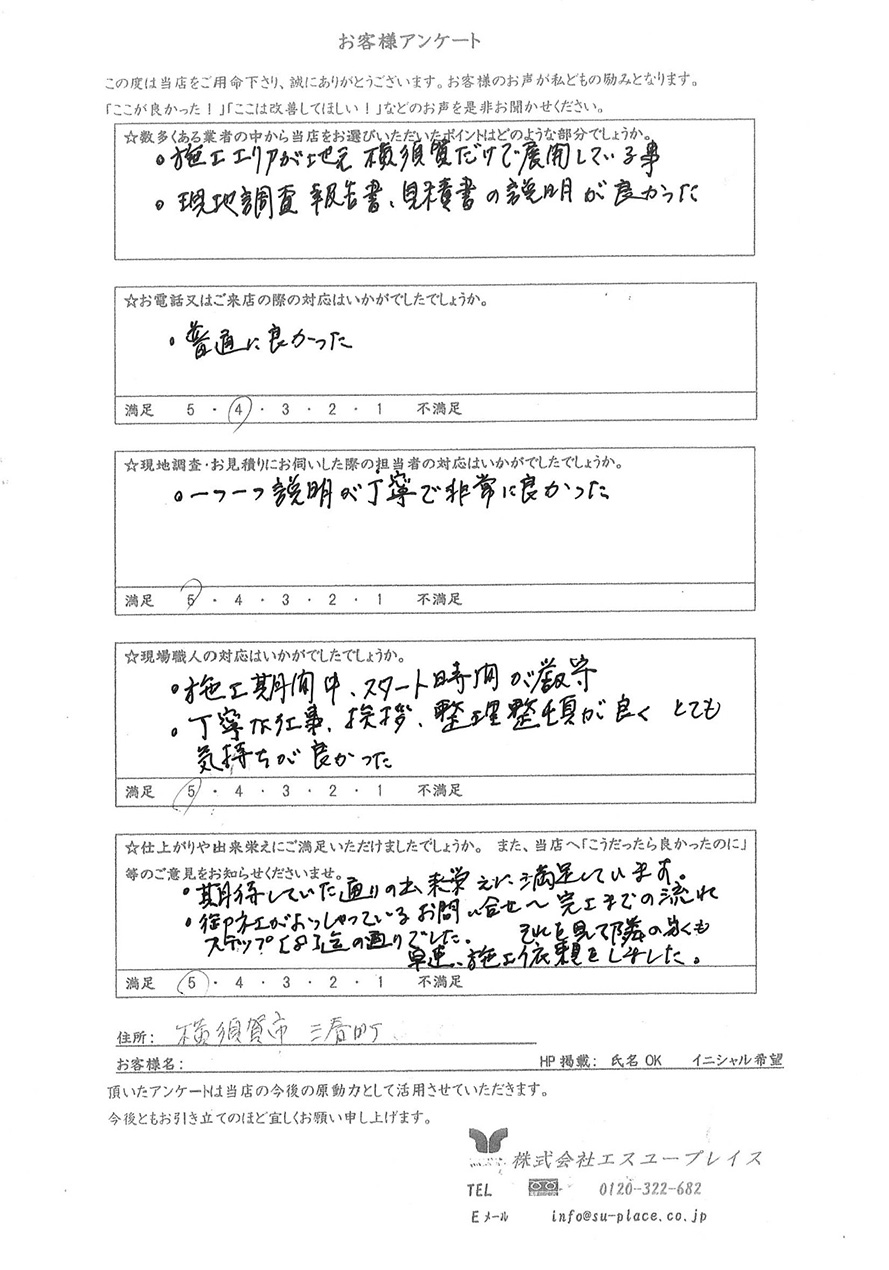 お客様アンケート
この度は当店をご用命下さり、誠にありがとうございます。お客様のお声が私どもの励みとなります。
「ここが良かった！」「ここは改善してほしい！」などのお声を是非お聞かせください。
☆数多くある業者の中から当店をお選びいただいたポイントはどのような部分でしょうか。
・施工エリアが地元 横須賀だけで展開している事
・現地調査 報告書、見積書の説明が良かった
☆お電話又はご来店の際の対応はいかがでしたでしょうか。
・普通に良かった
満足 5 ・ 4 ・ 3 ・ 2 ・ 1 不満足
☆現地調査・お見積りにお伺いした際の担当者の対応はいかがでしたでしょうか。
・一つ一つ説明が丁寧で非常に良かった
満足 5 ・ 4 ・ 3 ・ 2 ・ 1 不満足
☆現場職人の対応はいかがでしたでしょうか。
・施工期間中、スタート時間が厳守
・丁寧な仕事、挨拶、整理整頓が良く とても
気持ちが良かった
満足 5 ・ 4 ・ 3 ・ 2 ・ 1 不満足
☆仕上がりや出来栄えにご満足いただけましたでしょうか。 また、当店へ「こうだったら良かったのに」
等のご意見をお知らせくださいませ。
・期待していた通りの出来栄えに満足しています。
がおっしゃっているお問い合せ〜完工までの流れ
ステップの通りでした。 それを見て隣の
早速、施工依頼をしました。
満足 5 ・ 4 ・ 3 ・ 2 ・ 1 不満足
住所: 横須賀市 三春町
お客様名: HP掲載: 氏名OK イニシャル希望
頂いたアンケートは当店の今後の原動力として活用させていただきます。
今後ともお引き立てのほど宜しくお願い申し上げます。
株式会社エスユープレイス
TEL 0120-322-682
Eメール info@su-place.co.jp